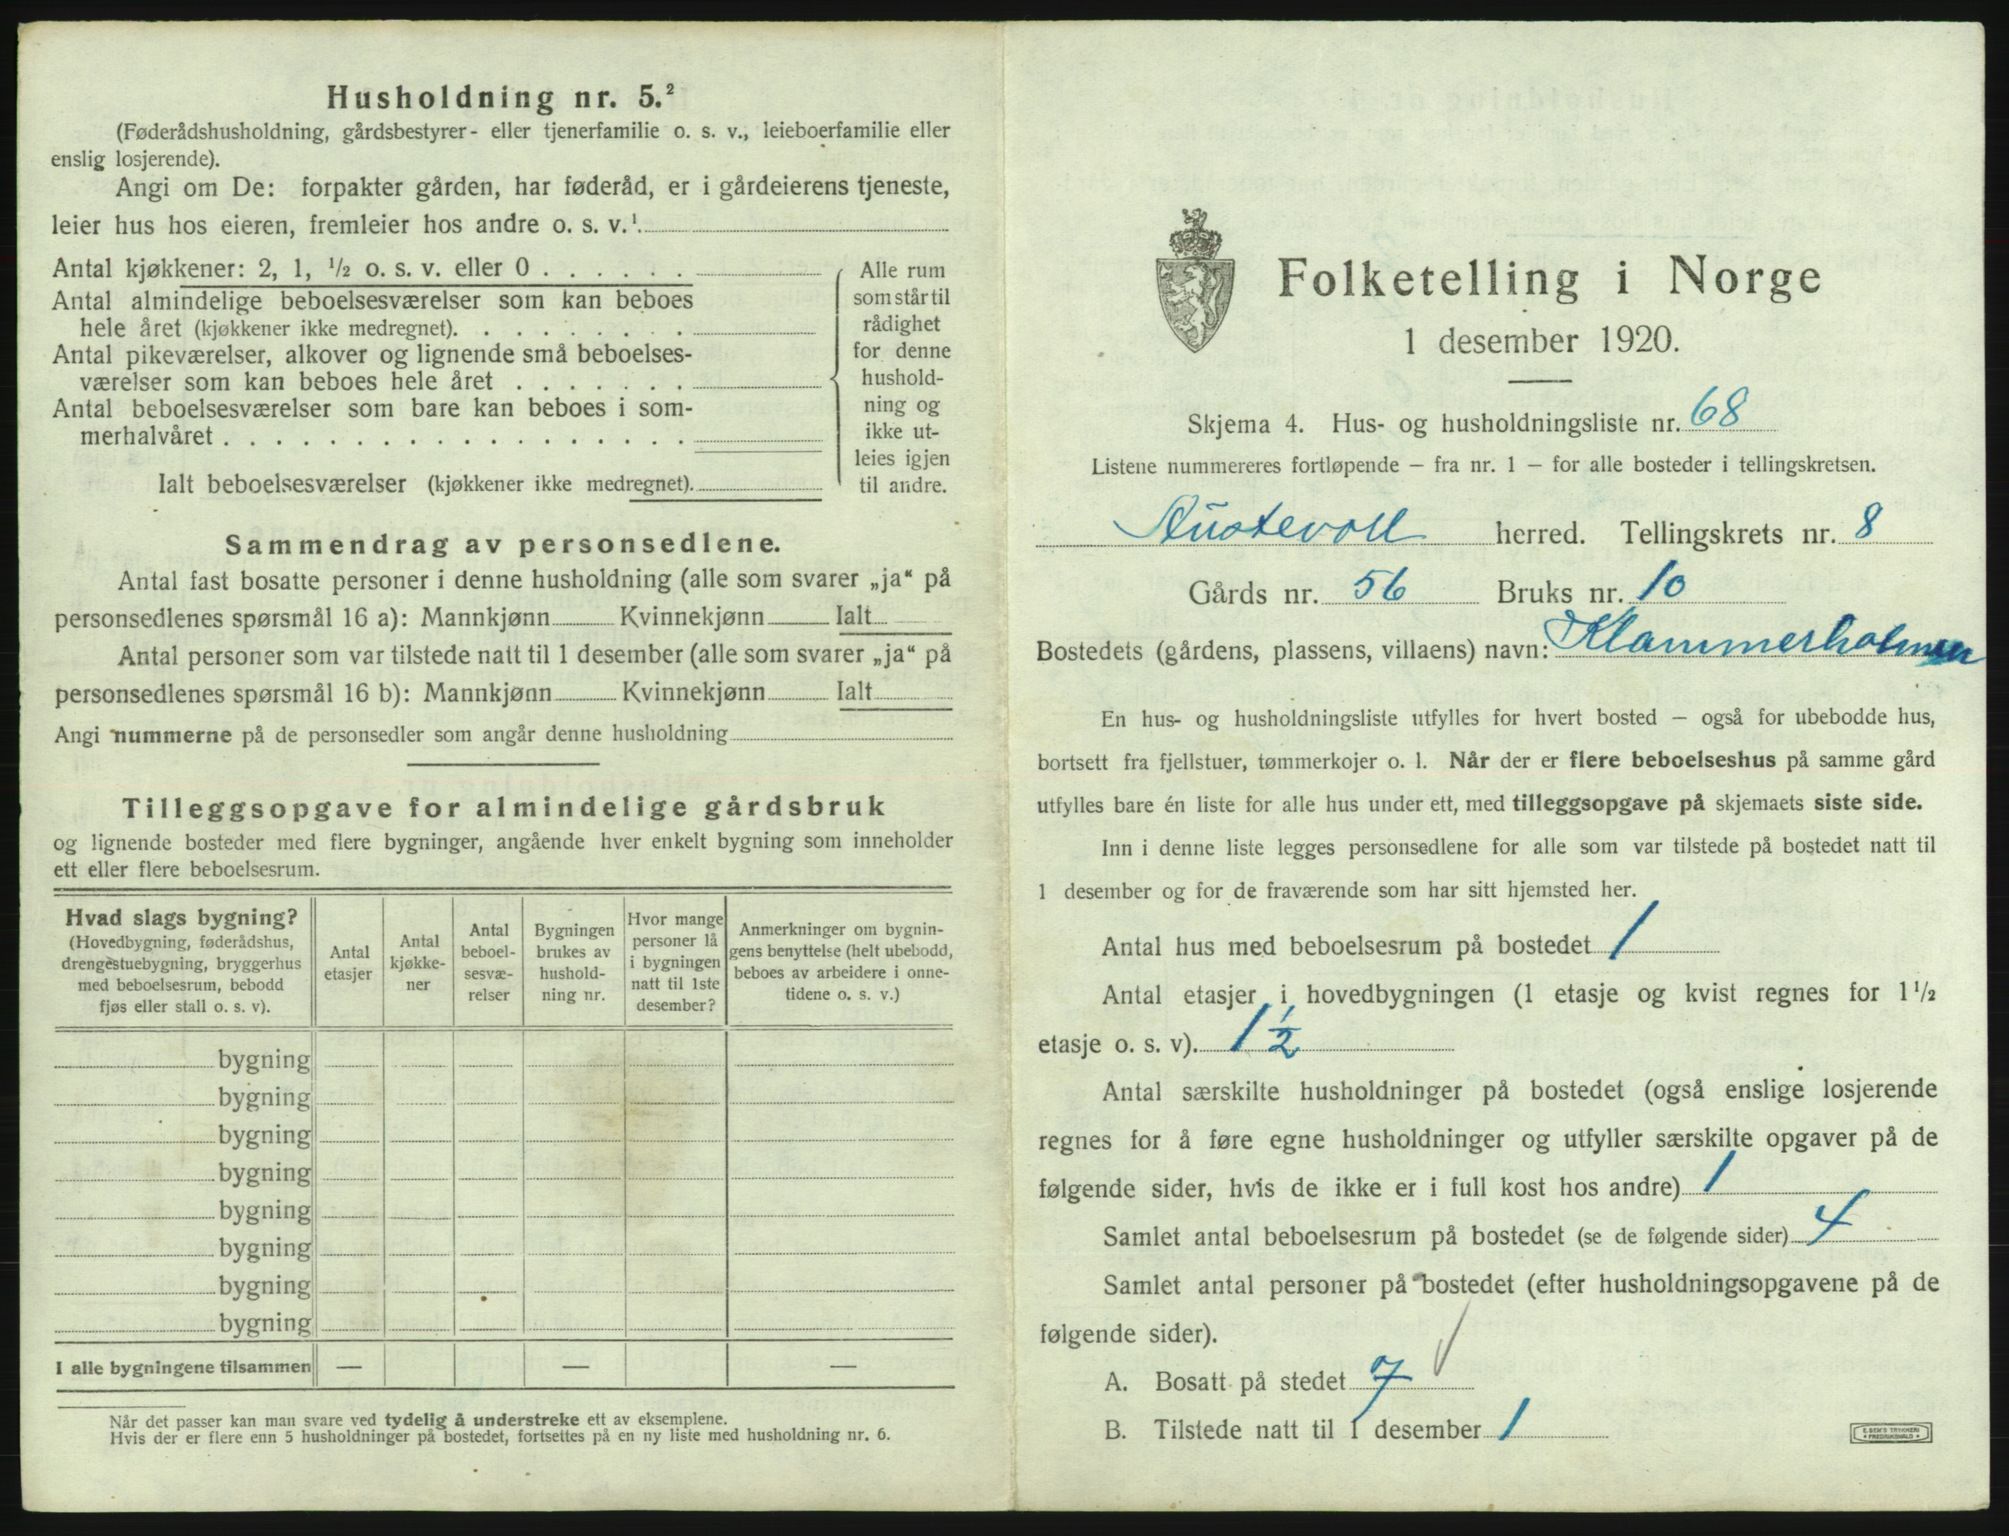 Husholdning nr. 5.²
(Føderådshusholdning, gårdsbestyrer- eller tjenerfamilie o. s. v., leieboerfamilie eller
enslig losjerende).
Angi om De: forpakter gården, har føderåd, er i gårdeierens tjeneste,
leier hus hos eieren, fremleier hos andre o. s. v.¹
Antal kjøkkener: 2, 1, ½ o. s. v. eller 0 . . . . . .
Antal almindelige beboelsesværelser som kan beboes
hele året (kjøkkener ikke medregnet). . . . . . . . .
Antal pikeværelser, alkover og lignende små beboelses-
værelser som kan beboes hele året . . . . . . .
Antal beboelsesværelser som bare kan beboes i som-
merhalvåret . . . . . . . . . . . . . . . . . .
Ialt beboelsesværelser (kjøkkener ikke medregnet).
Alle rum
som står til
rådighet
for denne
hushold-
ning og
ikke ut-
leies igjen
til andre.
Sammendrag av personsedlene.
Antal fast bosatte personer i denne husholdning (alle som svarer „ja“ på
personsedlenes spørsmål 16 a): Mannkjønn Kvinnekjønn Ialt
Antal personer som var tilstede natt til 1 desember (alle som svarer „ja“ på
personsedlenes spørsmål 16 b): Mannkjønn Kvinnekjønn Ialt
Angi nummerne på de personsedler som angår denne husholdning
Tilleggsopgave for almindelige gårdsbruk
og lignende bosteder med flere bygninger, angående hver enkelt bygning som inneholder
ett eller flere beboelsesrum.
Hvad slags bygning?
(Hovedbygning, føderådshus,
drengestuebygning, bryggerhus
med beboelsesrum, bebodd
fjøs eller stall o. s. v).
Antal
etasjer
Antal
kjøkke-
ner
Antal
beboel-
sesvæ-
relser
Bygningen
brukes av
hushold-
ning nr.
Hvor mange
personer lå
i bygningen
natt til 1ste
desember?
Anmerkninger om bygnin-
gens benyttelse (helt ubebodd,
beboes av arbeidere i onne-
tidene o. s. v.)
bygning
bygning
bygning
bygning
bygning
bygning
bygning
bygning
I alle bygningene tilsammen — — —
Når det passer kan man svare ved tydelig å understreke ett av eksemplene.
Hvis der er flere enn 5 husholdninger på bostedet, fortsettes på en ny liste med husholdning nr. 6.
Folketelling i Norge
1 desember 1920.
Skjema 4. Hus- og husholdningsliste nr. 68
Listene nummereres fortløpende – fra nr. 1 – for alle bosteder i tellingskretsen.
Austevoll herred. Tellingskrets nr. 8
Gårds nr. 56 Bruks nr. 10
Bostedets (gårdens, plassens, villaens) navn: Klammerholmen
En hus- og husholdningsliste utfylles for hvert bosted – også for ubebodde hus,
bortsett fra fjellstuer, tømmerkojer o. l. Når der er flere beboelseshus på samme gård
utfylles bare én liste for alle hus under ett, med tilleggsopgave på skjemaets siste side.
Inn i denne liste legges personsedlene for alle som var tilstede på bostedet natt til
1 desember og for de fraværende som har sitt hjemsted her.
Antal hus med beboelsesrum på bostedet 1
Antal etasjer i hovedbygningen (1 etasje og kvist regnes for 1½
etasje o. s. v). 1½
Antal særskilte husholdninger på bostedet (også enslige losjerende
regnes for å føre egne husholdninger og utfyller særskilte opgaver på de
følgende sider, hvis de ikke er i full kost hos andre) 1
Samlet antal beboelsesrum på bostedet (se de følgende sider) 4
Samlet antal personer på bostedet (efter husholdningsopgavene på de
følgende sider).
A. Bosatt på stedet 7
B. Tilstede natt til 1 desember 1
E. SEM'S TRYKKERI
FREDRIKSHALD